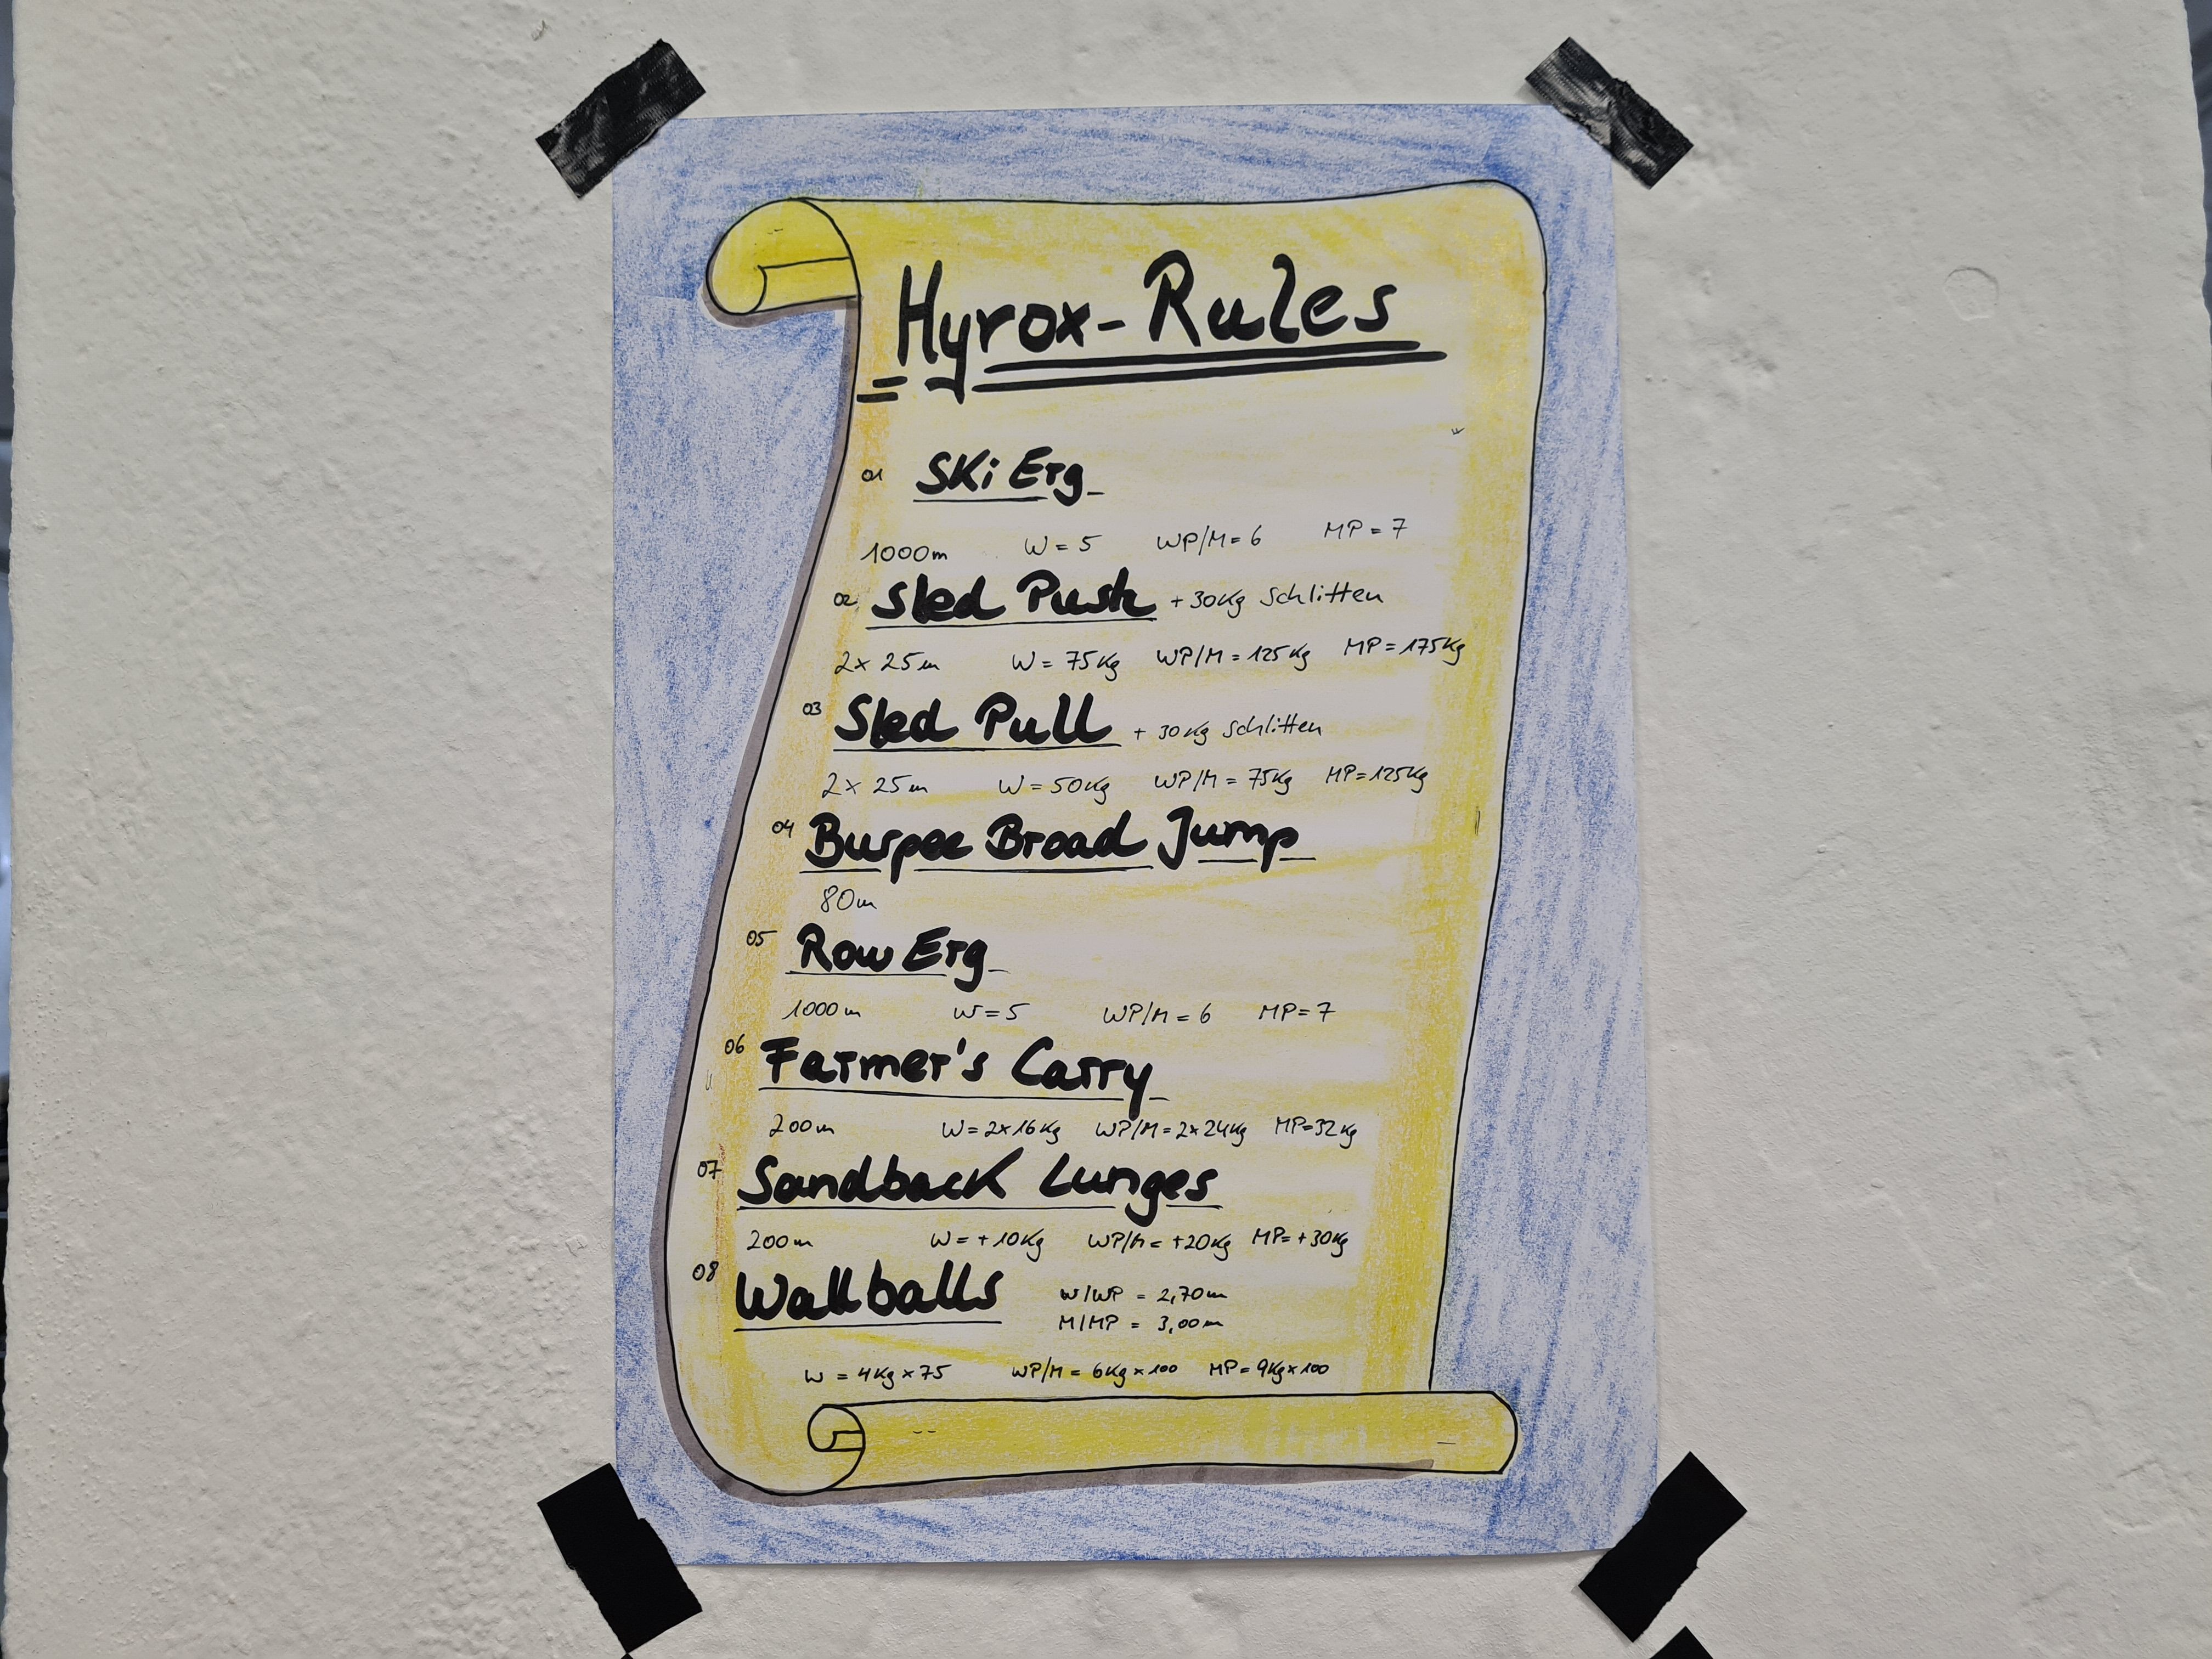 Hyrox-Rules
01 Ski Erg
1000m W = 5 WP/M = 6 MP = 7
02 Sled Push + 30Kg Schlitten
2x 25m W = 75Kg WP/M = 125Kg MP = 175Kg
03 Sled Pull + 30Kg Schlitten
2x 25m W = 50Kg WP/M = 75Kg MP = 125Kg
04 Burpee Broad Jump
80m
05 Row Erg
1000m W = 5 WP/M = 6 MP = 7
06 Farmer's Carry
200m W = 2x16Kg WP/M = 2x24Kg MP=32Kg
07 Sandback Lunges
200m W = +10Kg WP/M = +20Kg MP= +30Kg
08 Wallballs W/WP = 2,70m
M/MP = 3,00m
W = 4Kg x 75 WP/M = 6Kg x 100 MP = 9Kg x 100